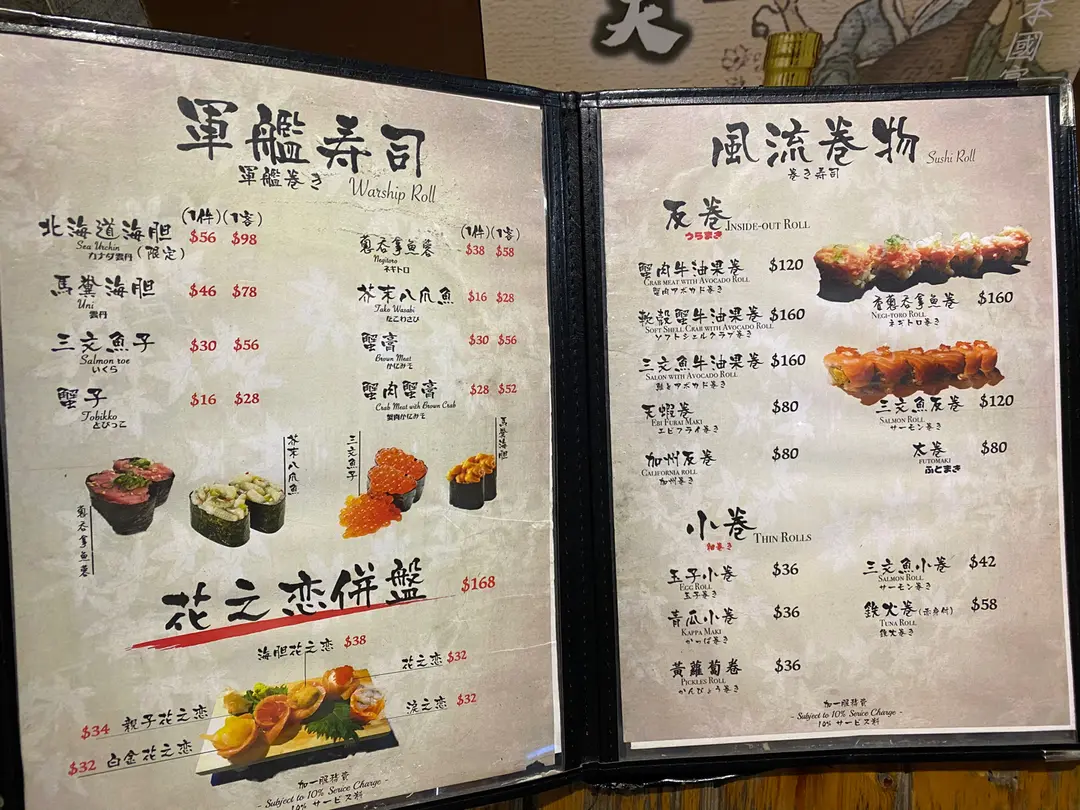 本國
軍艦寿司
軍艦巻き
Warship Roll
(1件)(1客)
北海道海胆 $56 $98
Sea Urchin (限定)
カナダ雲丹
馬糞海胆 $46 $78
Uni
雲丹
三文魚子 $30 $56
Salmon roe
いくら
蟹子 $16 $28
Tobikko
とびっこ
(1件)(1客)
蔥吞拿魚蓉 $38 $58
Negitoro
ネギトロ
芥末八爪魚 $16 $28
Tako Wasabi
たこわさび
蟹膏 $30 $56
Brown Meat
かにみそ
蟹肉蟹膏 $28 $52
Crab Meat with Brown Crab
蟹肉かにみそ
蔥吞拿魚蓉
芥末八爪魚
三文魚子
馬糞海胆
花之恋併盤 $168
海胆花之恋 $38
花之恋 $32
浪之恋 $32
$34 親子花之恋
$32 白金花之恋
加一服務費
- Subject to 10% Serice Charge -
10% サービス料
風流巻物 Sushi Roll
巻き寿司
反巻 Inside-out Roll
うらまき
蟹肉牛油果巻 $120
Crab meat with Avocado Roll
蟹肉アボカド巻き
軟殼蟹牛油果巻 $160
Soft Shell Crab with Avocado Roll
ソフトシェルクラブ巻き
三文魚牛油果巻 $160
Salon with Avocado Roll
鮭とアボカド巻き
天蝦巻 $80
Ebi Furai Maki
エビフライ巻き
加州反巻 $80
California roll
加州巻き
香蔥吞拿魚巻 $160
Negi-toro Roll
ネギトロ巻き
三文魚反巻 $120
Salmon Roll
サーモン巻き
太巻 $80
futomaki
ふとまき
小巻 Thin Rolls
細巻き
玉子小巻 $36
Egg Roll
玉子巻き
青瓜小巻 $36
Kappa Maki
かっぱ巻き
黃蘿蔔巻 $36
Pickles Roll
かんぴょう巻き
三文魚小巻 $42
Salmon Roll
サーモン巻き
鉄火巻(赤身付) $58
Tuna Roll
鉄火巻き
加一服務費
- Subject to 10% Serice Charge -
10% サービス料